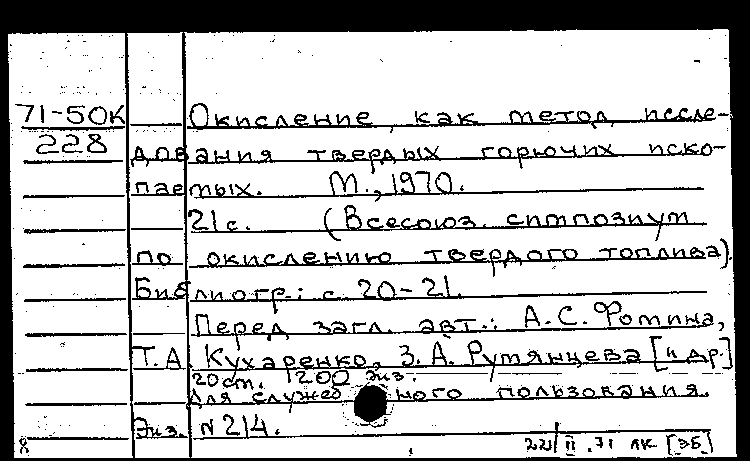 71-50К Окисление, как метод иссле-
228 дования твердых горючих иско-
паемых. М., 1970.
21с. (Всесоюз. симпозиум
по окислению твердого топлива).
Библиогр.: с. 20-21.
Перед загл. авт.: А.С. Фомина,
Т.А. Кухаренко, З.А. Румянцева [и др.]
20 см. 1200 экз.
Для служебного пользования.
Экз. N 214.
8 22/II.71 ЛК [ЭБ]